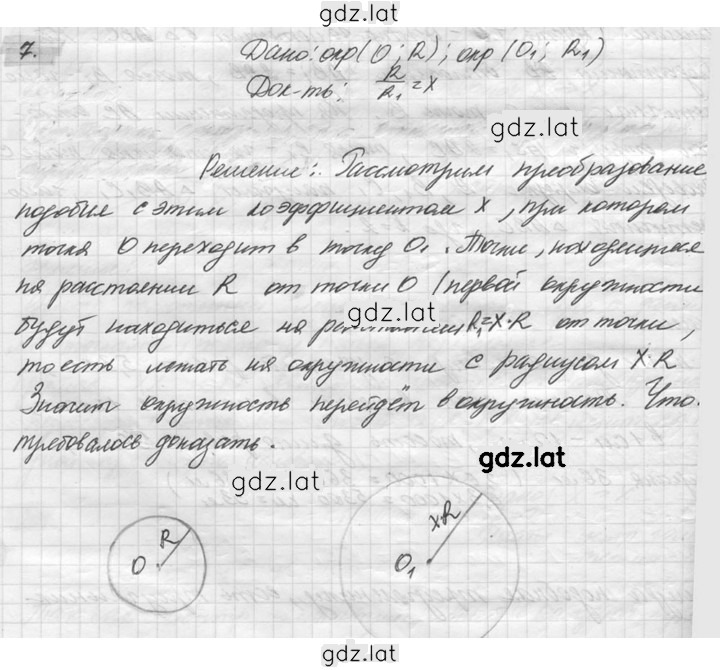 gdz.lat
7.
Дано: окр(O; R); окр(O₁; R₁)
Док-ть: R/R₁ = X
gdz.lat
Решение: Рассмотрим преобразование
подобия с этим коэффициентом X, при котором
точка O переходит в точку O₁. Точки, находящиеся
на расстоянии R от точки O (первой окружности
gdz.lat
будут находиться на R₁=X·R от точки,
то есть лежать на окружности с радиусом X·R
Значит окружность перейдёт в окружность. Что.
требовалось доказать.
gdz.lat
gdz.lat
O R
O₁ X·R
gdz.lat